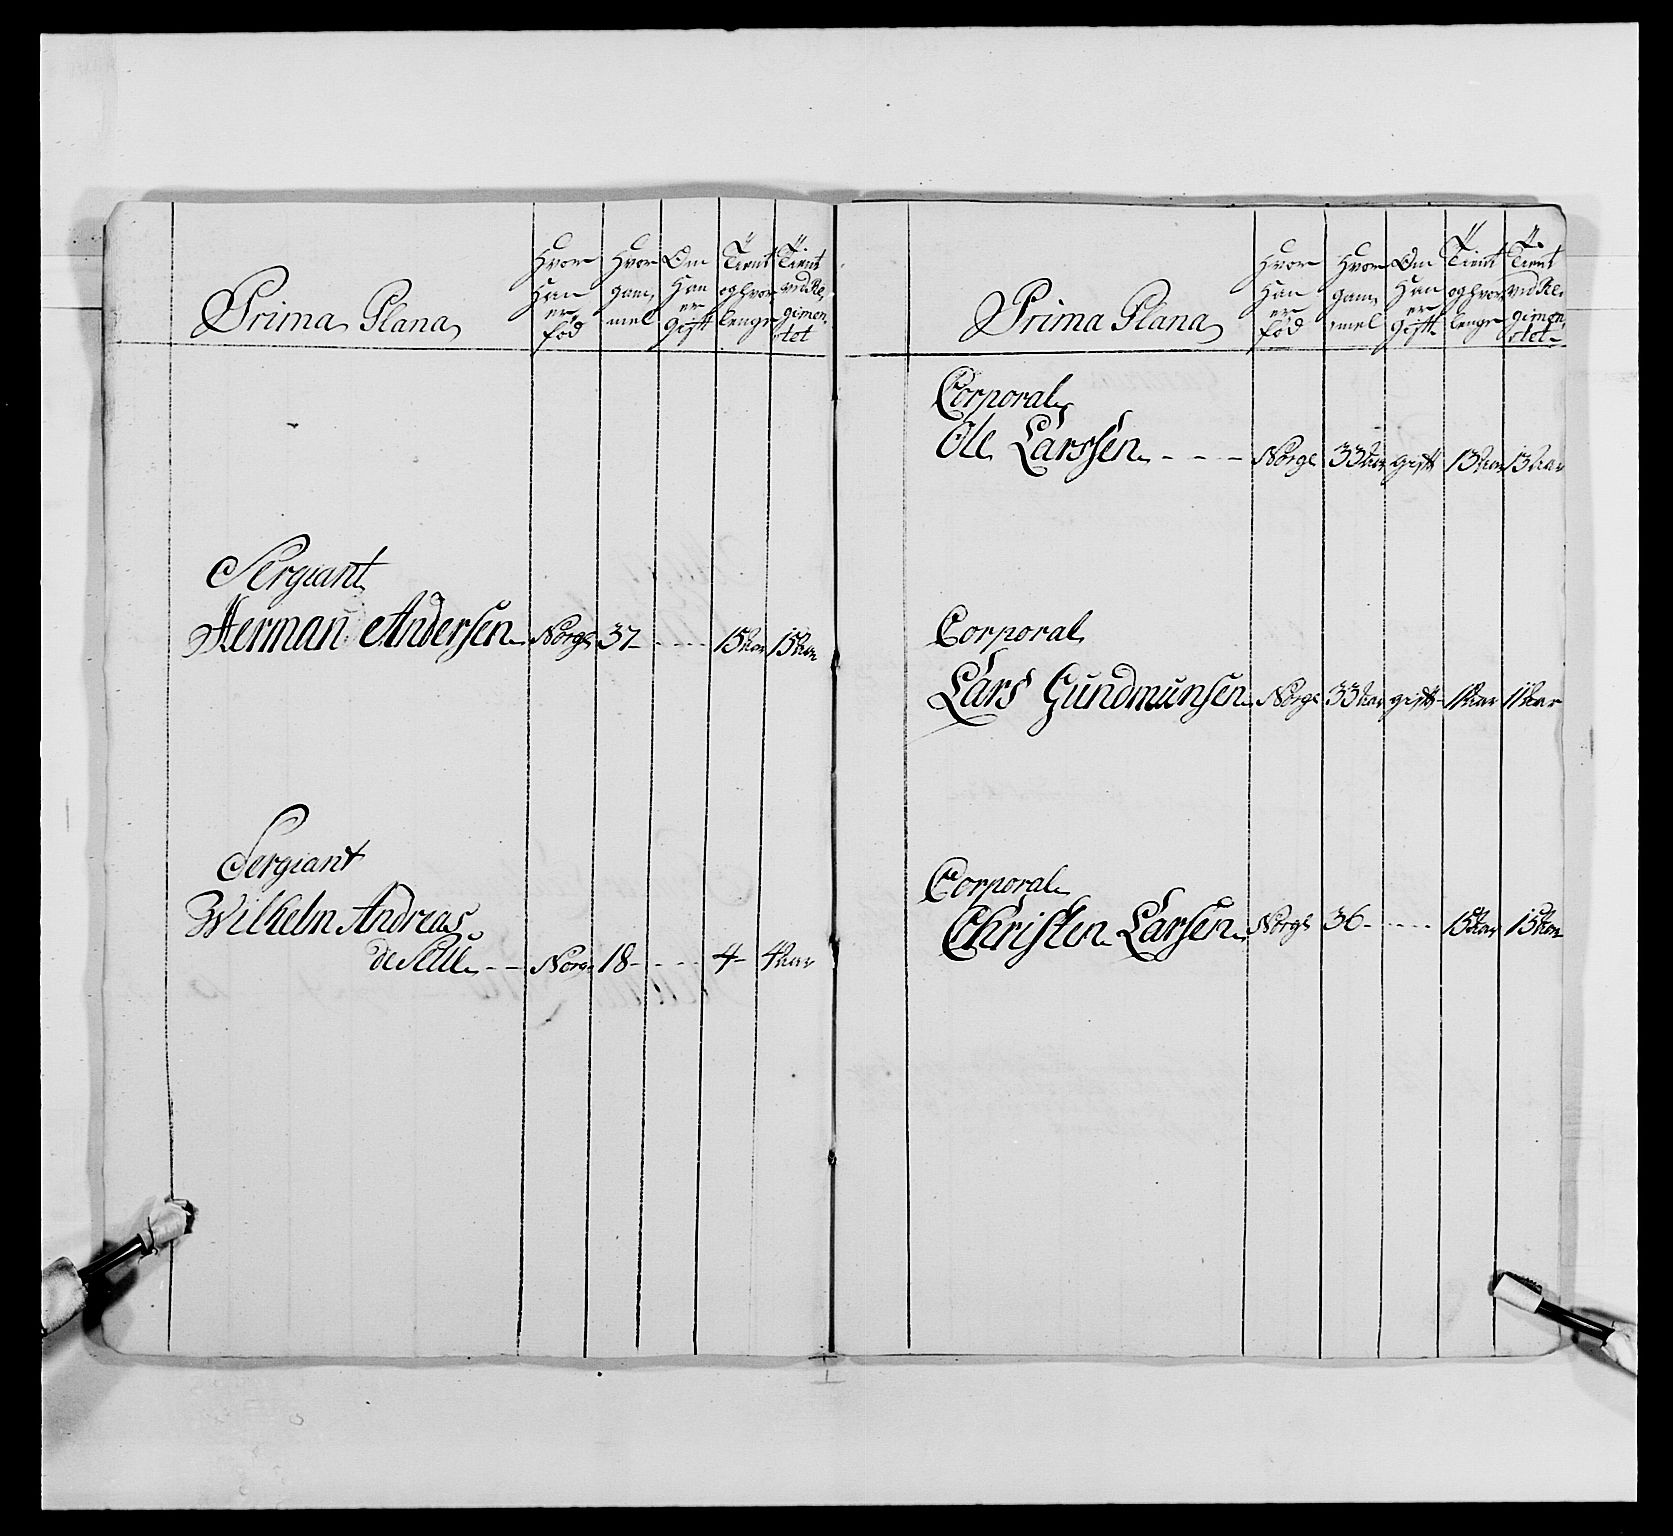 Prima Plana
Hvor Han er fød
Hvor gam, mel
Om Han er gift
Tient og hvor lenge
Tient vid Re, gimen, tet
Sergiant
Herman Andersen Norge 37 - - - - 15 Aar 15 Aar
Sergiant
Wilhelm Andreas
de - - Norge 18 - - - - 4 - 4 Aar
Prima Plana
Hvor Han er fød
Hvor gam, mel
Om Han er gift
Tient og hvor lenge
Tient vid Re, gimen, tet
Corporal
Ole Larssen - - - - Norge 33 Aar gift 13 Aar 13 Aar
Corporal
Lars Gundmunsen Norge 33 Aar gift 11 Aar 11 Aar
Corporal
Christen Larsen Norge 36 - - - - 15 Aar 15 Aar